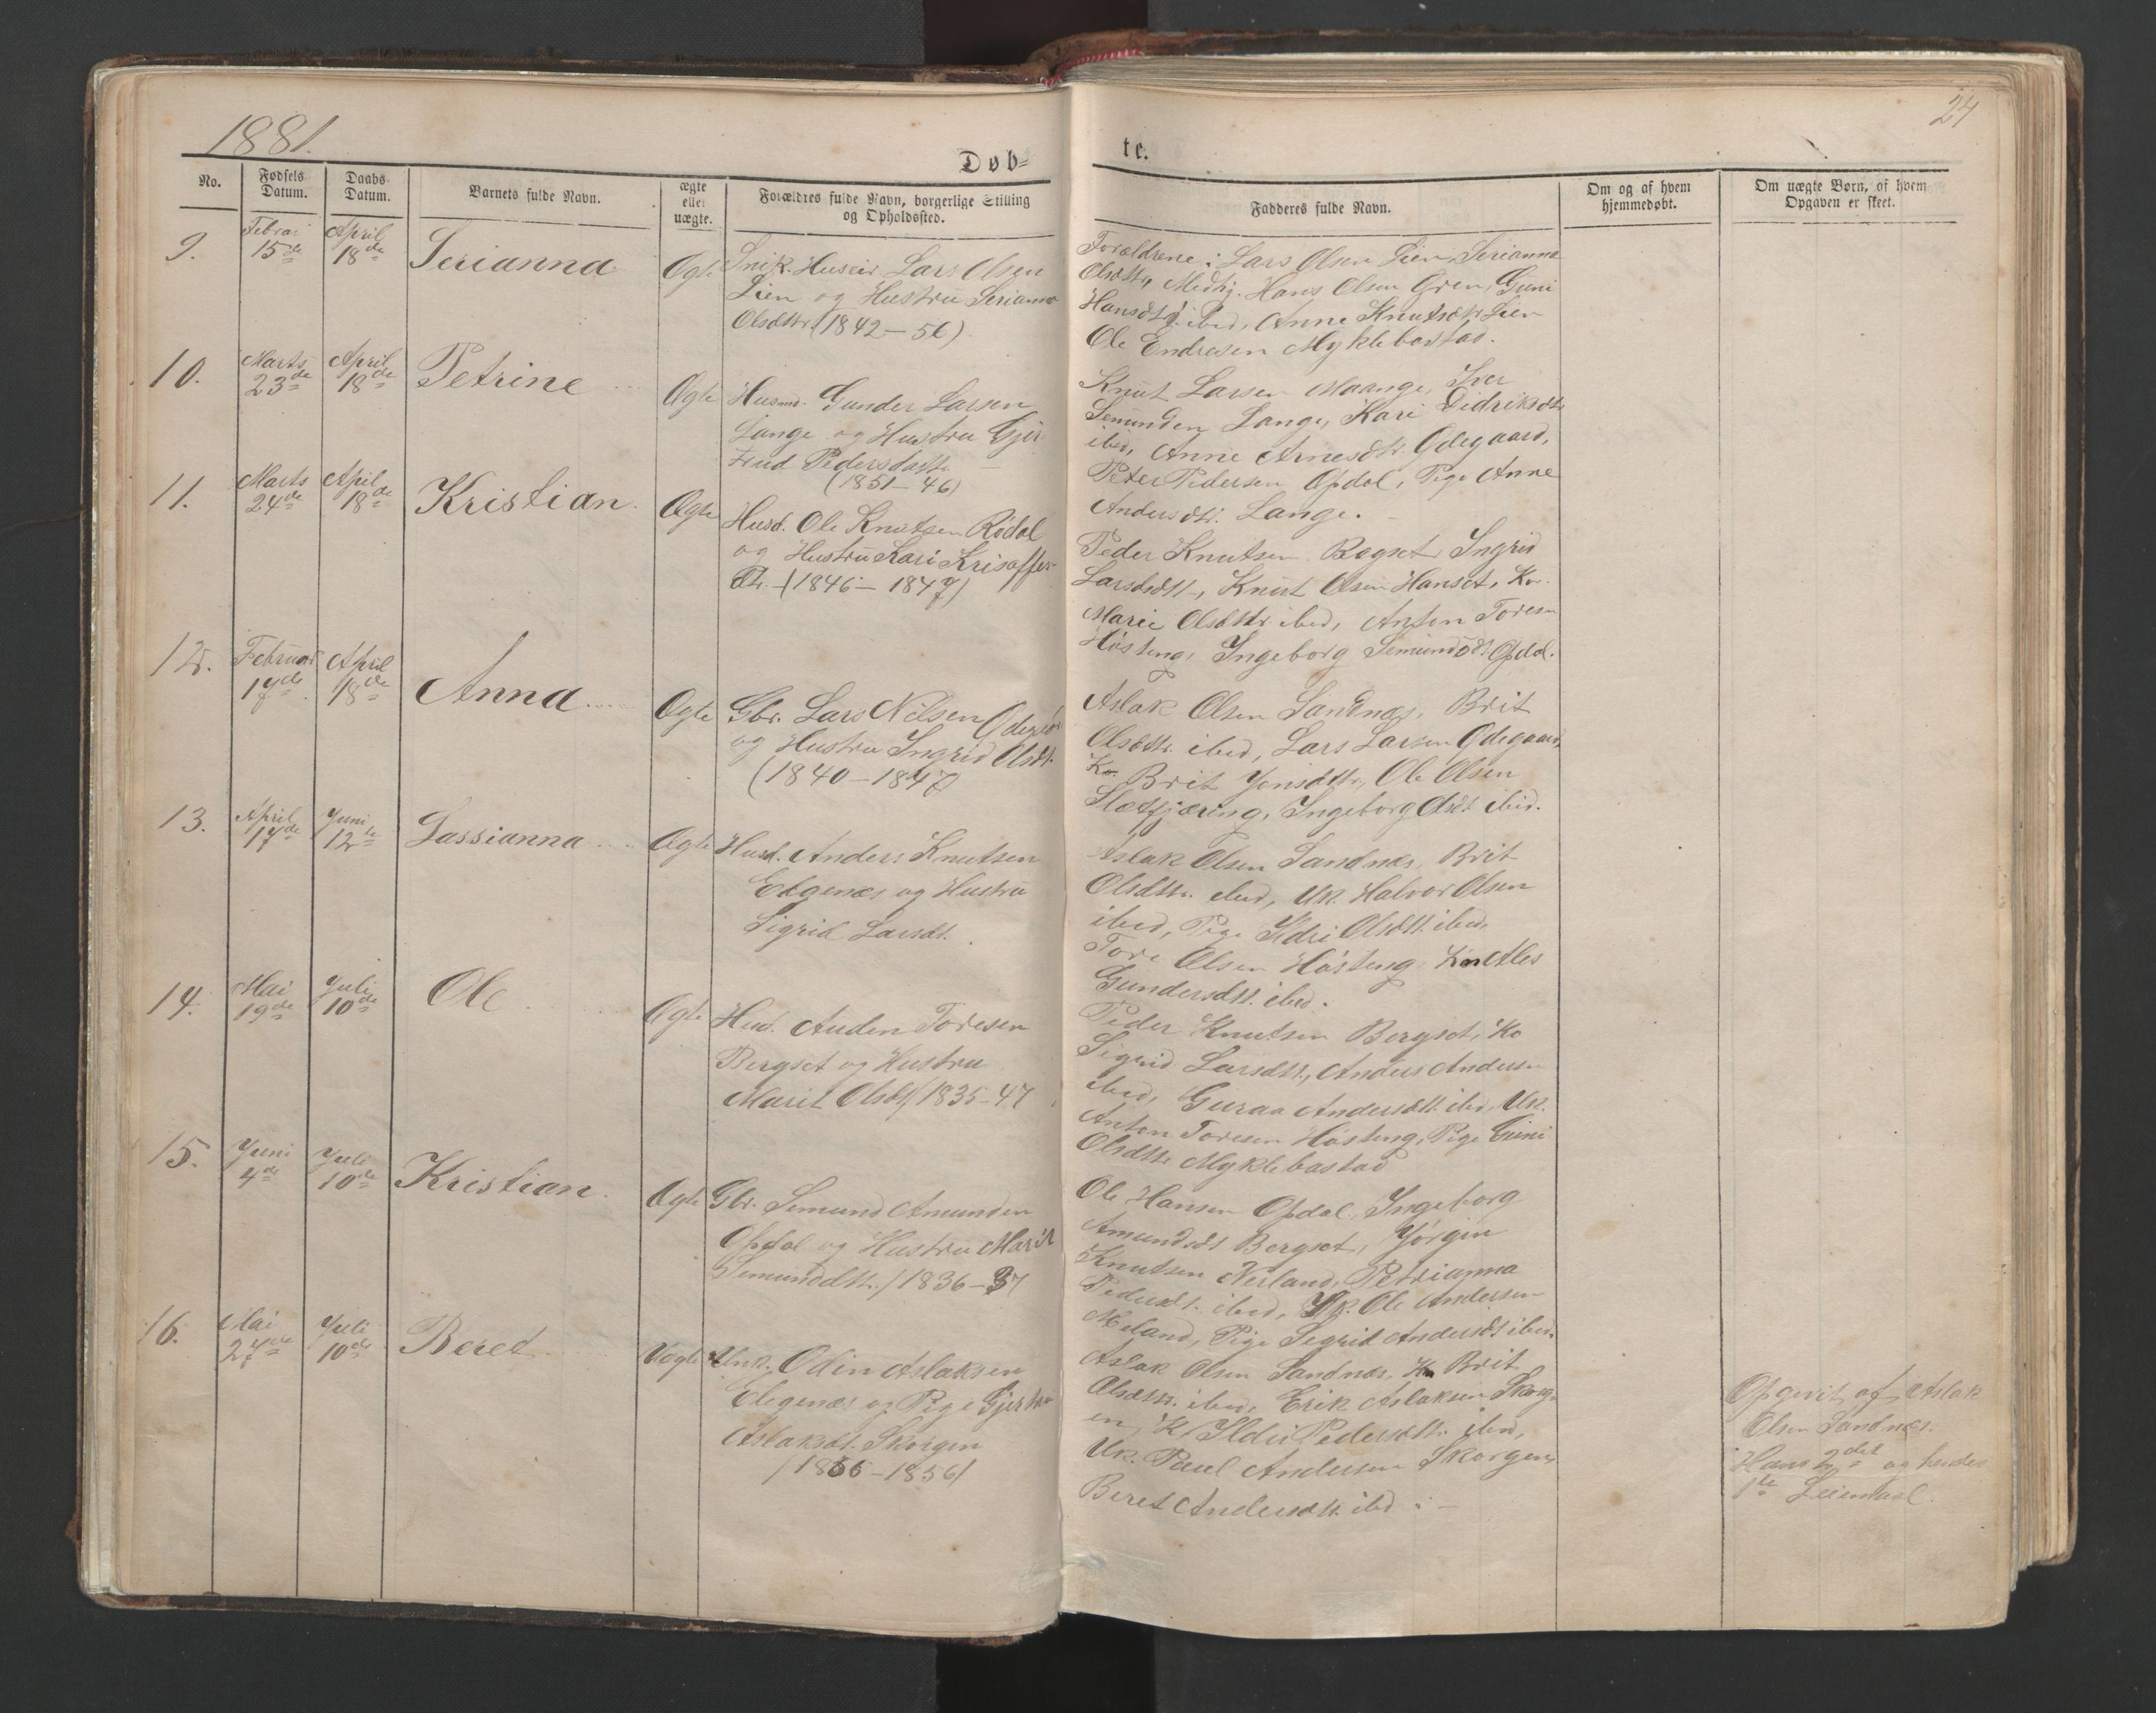 1881.
24
Døb-
te.
No.
Fødsels Datum.
Daabs Datum.
Barnets fulde Navn.
ægte eller uægte.
Forældres fulde Navn, borgerlige Stilling og Opholdssted.
Fadderes fulde Navn.
Om og af hvem hjemmedøbt.
Om uægte Børn, af hvem Opgaven er skeet.
9.
Febrar
15de
April
18de
Serianna
Ægte
Snik. Huseier Lars Olsen
Lien og Hustru Serianna
Olsdttr (1842–56)
Forældrene: Lars Olsen Lien, Serianna
Olsdttr, Medhj. Hans Olsen Gren, Guni
Hansdtt ibid, Anne Knutsdtr Lien
Ole Endresen Myklebostad.
10.
Marts
23de
April
18de
Petrine
Ægte
Husmd. Gunder Larsen
Lange og Hustru Gjer-
trud Pedersdattr.
(1851–46)
Knut Larsen Maange, Iver
Semunden Lange, Kari Didriksdtr
ibid, Anne Arnesdtr. Ødegaard,
Peter Pedersen Opdøl, Pige Anne
Andersdtr. Lange.
11.
Marts
24de
April
18de
Kristian.
Ægte
Husd. Ole Knutsen Rødal
og Hustru Kari Kristoffer-
dtr. (1846–1847)
Peder Knutsen Bægset, Ingrid
Larsdsdtt, Knut Olsen Hanset, Ko.
Marie Olsdttr ibid, Anton Toresen
Høsteng, Ingeborg Semundsdt Opdøl.
12.
Februar
17de
April
18de
Anna
Ægte
Gbr. Lars Nilsen
og Hustru Ingrid Olsdt.
(1840–1847)
Aslak Olsen Sandnes, Brit
Olsdttr. ibid, Lars Larsen Ødegaard,
Ko. Brit Jonsdttr, Ole Olsen
Slatfjæring, Ingeborg Olsdt. ibid.
13.
April
17de
Juni
12te
Lassianna
Ægte
Husd. Anders Knutsen
Elgenæs og Hustru
Sigrid Larsdt.
Aslak Olsen Sandnes, Brit
Olsdttr. ibid, Uk. Halvor Olsen
ibid, Pige Ildri Olsdtt. ibid,
Tore Olsen Høsteng, Kone Ales
Gundersdtt. ibid.
14.
Mai
19de
Juli
10de
Ole
Ægte
Husd. Auden Toresen
Bergset og Hustru
Marit Olsdt/1835–47
Peder Knutsen Bergset, Ko
Sigrid Larsdtt., Anders Andersen
ibid, Guraa Andersdtt. ibid, Uk.
Anton Toresen Høsteng, Pige Guni
Olsdttr Myklebostad
15.
Juni
4de
Juli
10de
Kristian.
Ægte
Gbr. Semund Amunden
Opdøl og Hustru Marit
Semundsdtr./1836–37
Ole Hansen Opdøl, Ingeborg
Amundsdt Bergset, Jørgen
Knutsen Nerland, Petrianna
Pedersdt. ibid, Uk. Ole Andersen
Meland, Pige Segrid Andersdt ibid.
16.
Mai
27de
Juli
10de
Beret
Uægte
Unk. Odin Aslaksen
Elegenæs og Pige Gjertru
Aslaksdt. Skorgen
/1856–1856/
Aslak Olsen Sandnes, Ko Brit
Olsdttr. ibid, Erik Aslaksen Skorg-
en, K. Ildri Pedersdtt. ibid,
Uk. Paul Andersen Skorgen,
Beret Andersdtt. ibd :–
Opgivit af Aslak
Olsen Sandnes.
Hans 2det og hendes
1te Leiermaal.